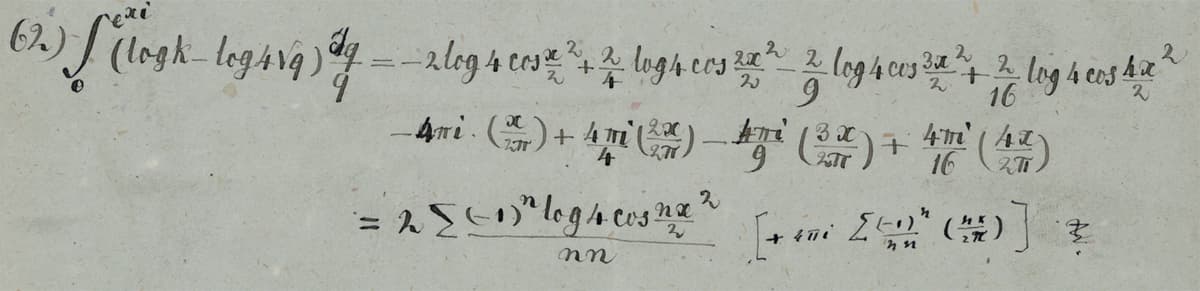 62.) ∫₀^{e^{xi}} (log k – log 4√q) dq/q = –2 log 4 cos x/2² + 2/4 log 4 cos 2x/2² – 2/9 log 4 cos 3x/2² + 2/16 log 4 cos 4x/2²
– 4πi · (x/2π) + 4πi/4 (2x/2π) – 4πi/9 (3x/2π) + 4πi/16 (4x/2π)
= 2 Σ (–1)ⁿ log 4 cos nx/2² / nn [+ 4πi Σ (–1)ⁿ/nn (nx/2π)]